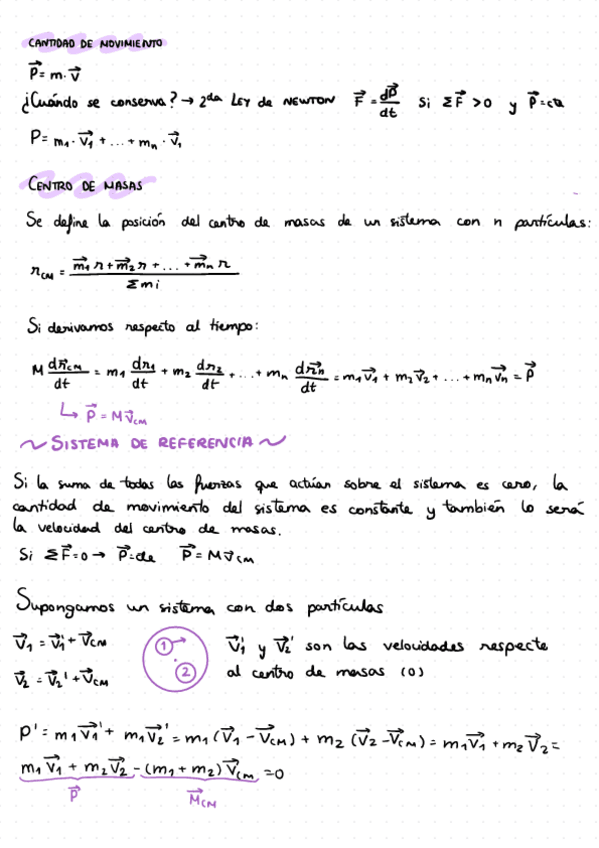 CANTIDAD DE MOVIMIENTO
P⃗ = m · v⃗
¿Cuándo se conserva? → 2da LEY de NEWTON F⃗ = dp⃗/dt Si ΣF⃗ > 0 y p⃗ = cte
P = m₁ · v⃗₁ + ... + mₙ · v⃗₁
CENTRO DE MASAS
Se define la posición del centro de masas de un sistema con n partículas:
r_CM = (m⃗₁ r + m⃗₂ r + ... + m⃗ₙ r)/Σmi
Si derivamos respecto al tiempo:
M dr⃗_CM/dt = m₁ dr₁/dt + m₂ dr₂/dt + ... + mₙ dr⃗ₙ/dt = m₁v⃗₁ + m₂v⃗₂ + ... + mₙv⃗ₙ = P⃗
↳ P⃗ = Mv⃗_CM
~ SISTEMA DE REFERENCIA ~
Si la suma de todas las fuerzas que actúan sobre el sistema es cero, la
cantidad de movimiento del sistema es constante y también lo será
la velocidad del centro de masas.
Si ΣF⃗ = 0 → P⃗ = cte P⃗ = Mv⃗_CM
Supongamos un sistema con dos partículas
v⃗₁ = v⃗₁' + v⃗_CM
1
v⃗₁' y v⃗₂' son las velocidades respecte
v⃗₂ = v⃗₂' + v⃗_CM
2
al centro de masas (0)
P' = m₁v⃗₁' + m₁v⃗₂' = m₁ (v⃗₁ - v⃗_CM) + m₂ (v⃗₂ - v⃗_CM) = m₁v⃗₁ + m₂v⃗₂ =
m₁v⃗₁ + m₂v⃗₂ - (m₁ + m₂) v⃗_CM = 0
P⃗ M⃗_CM